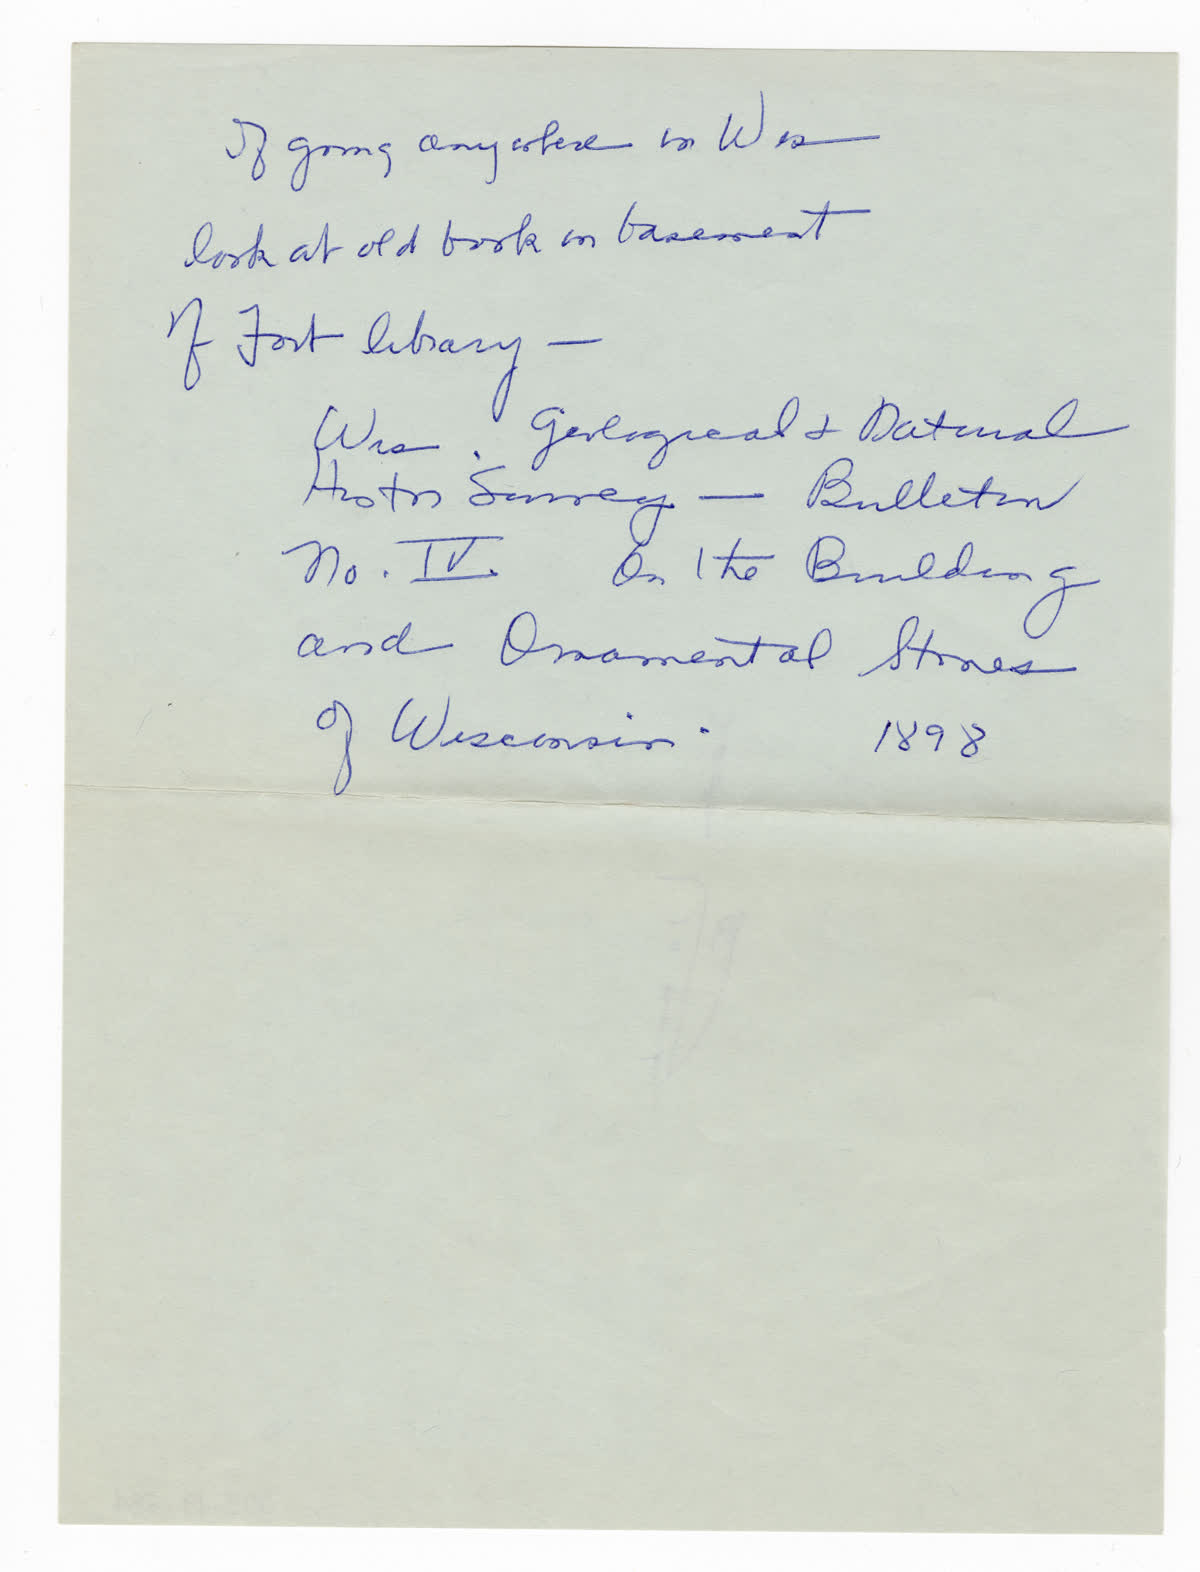 If going anywhere in Wis
look at old book in basement
of Fort library —
Wis. Geological & Natural
Histor Survey — Bulletin
No. IV. On the Building
and Ornamental Stones
of Wisconsin. 1898